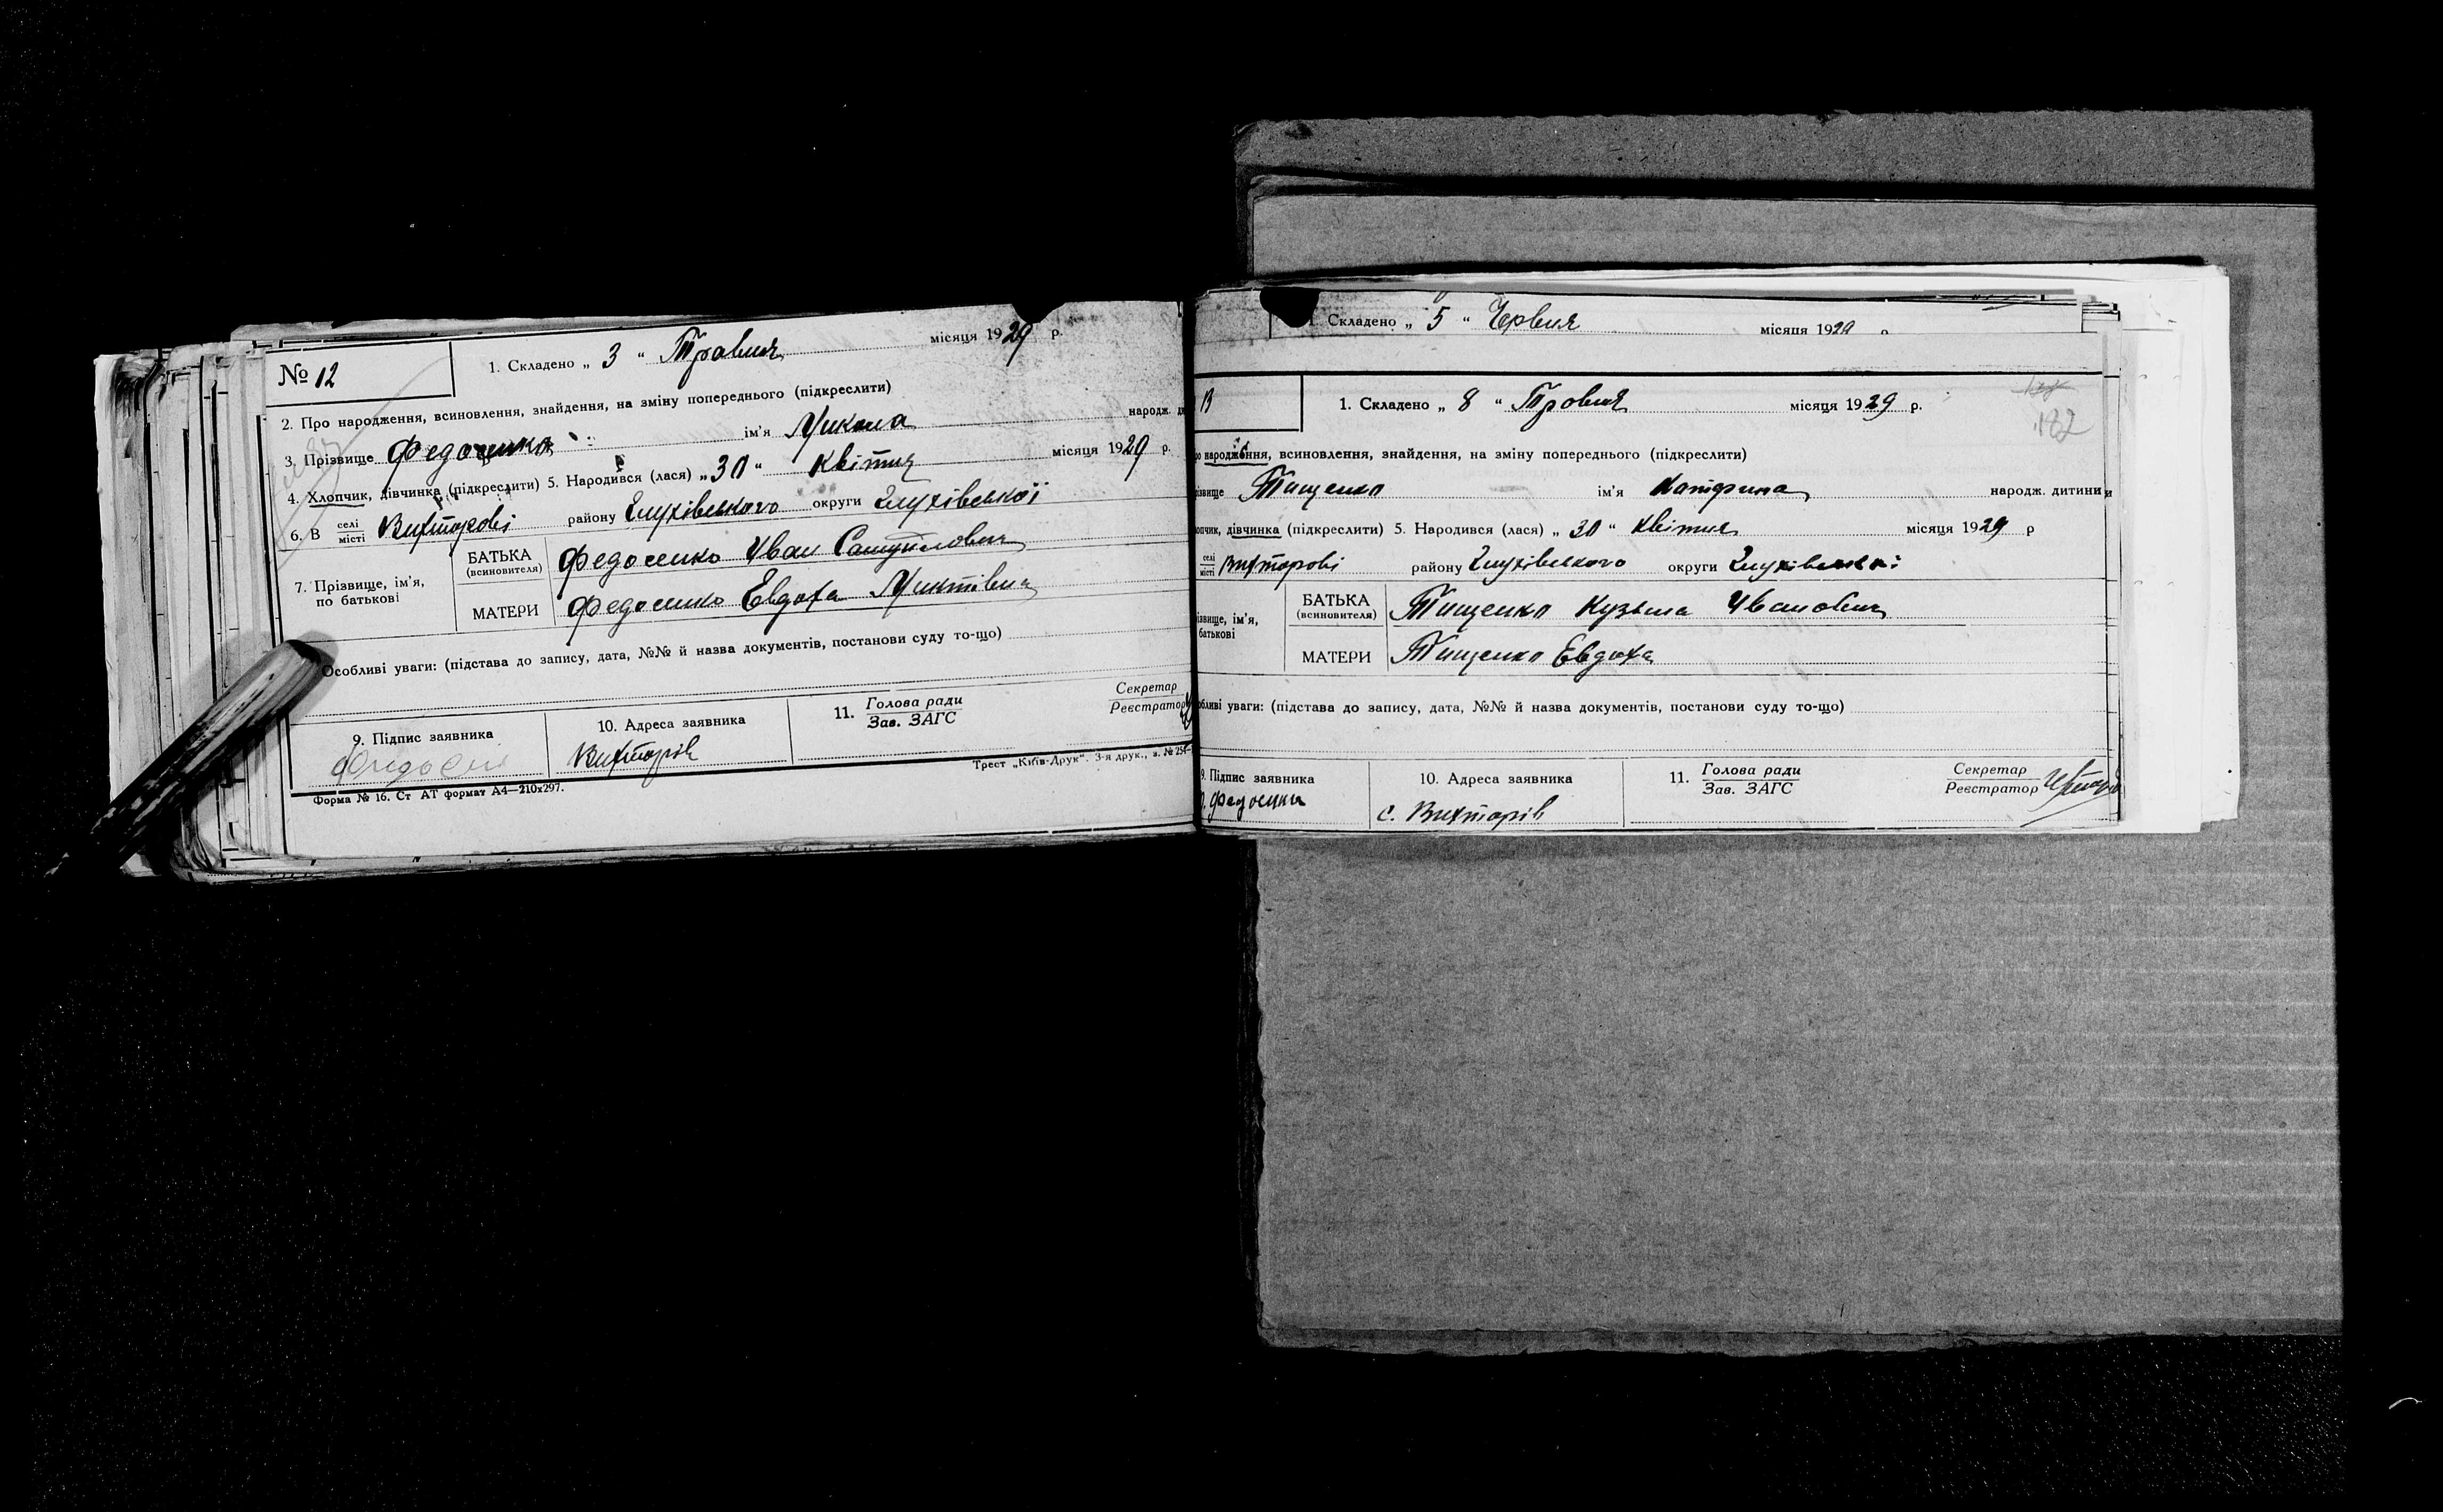 № 12
1. Складено „ 3 “ Травня місяця 1929 р.
2. Про народження, всиновлення, знайдення, на зміну попереднього (підкреслити)
3. Прізвище Федосенко ім'я Микола народж. ди
4. Хлопчик, дівчинка (підкреслити) 5. Народився (лася) „ 30 “ Квітня місяця 1929 р.
6. В селі місті Вихторові району Глухівського округи Глухівської
7. Прізвище, ім'я, по батькові
БАТЬКА (всиновителя) Федосенко Іван Самуйлович
МАТЕРИ Федосенко Евдоха Микитівна
Особливі уваги: (підстава до запису, дата, №№ й назва документів, постанови суду то-що)
9. Підпис заявника
10. Адреса заявника
11. Голова ради Зав. ЗАГС
Секретар Реєстратор
Вихторів
Форма № 16. Ст АТ формат А4—210х297.
Трест „Київ-Друк“. 3-я друк., з. № 254-
1. Складено „ 5 “ Червня місяця 1929 р
1. Складено „ 8 “ Тровня місяця 1929 р.
182
о народження, всиновлення, знайдення, на зміну попереднього (підкреслити)
ізвище Тищенко ім'я Катфрина народж. дитини
опчик, дівчинка (підкреслити) 5. Народився (лася) „ 30 “ Квітня місяця 1929 р
селі місті Вихторові району Глухівського округи Глухівської
ізвище, ім'я, батькові
БАТЬКА (всиновителя) Тищенко Кузьма Іванович
МАТЕРИ Тищенко Евдоха
обливі уваги: (підстава до запису, дата, №№ й назва документів, постанови суду то-що)
9. Підпис заявника
10. Адреса заявника
11. Голова ради Зав. ЗАГС
Секретар Реєстратор
Федосенко
с. Вихторів